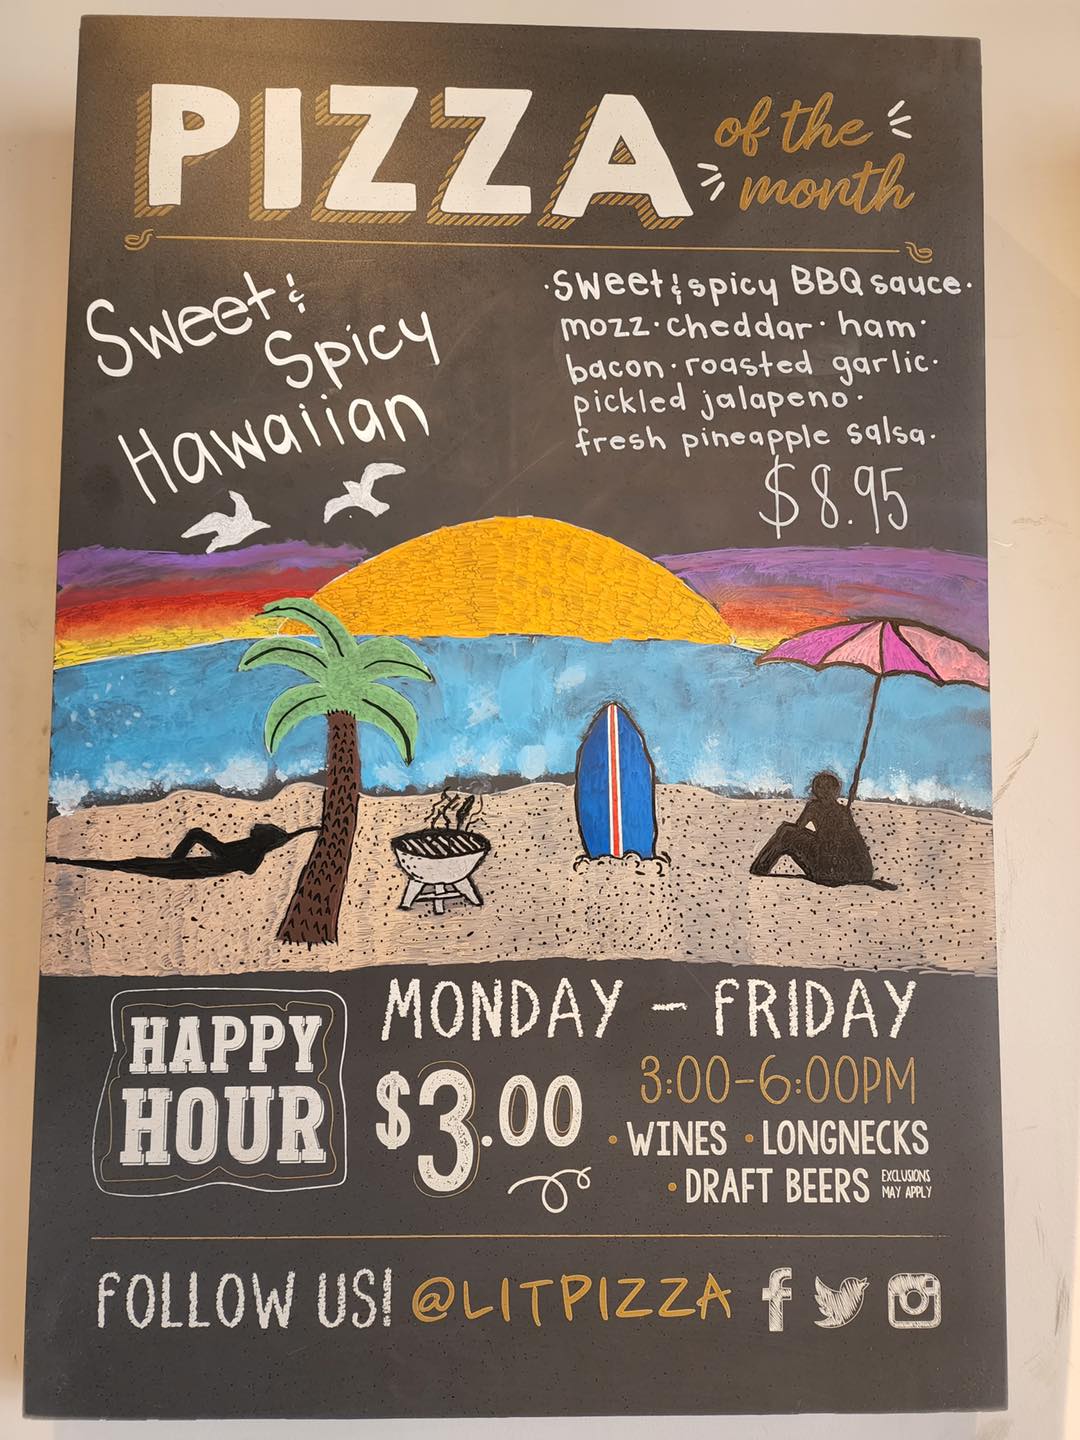 PIZZA of the month
Sweet &
Spicy
Hawaiian
·Sweet & spicy BBQ sauce·
mozz·cheddar·ham·
bacon·roasted garlic·
pickled jalapeno·
fresh pineapple salsa·
$8.95
HAPPY
HOUR
MONDAY – FRIDAY
$3.00
3:00-6:00PM
• WINES • LONGNECKS
• DRAFT BEERS EXCLUSIONS
MAY APPLY
FOLLOW US! @LITPIZZA